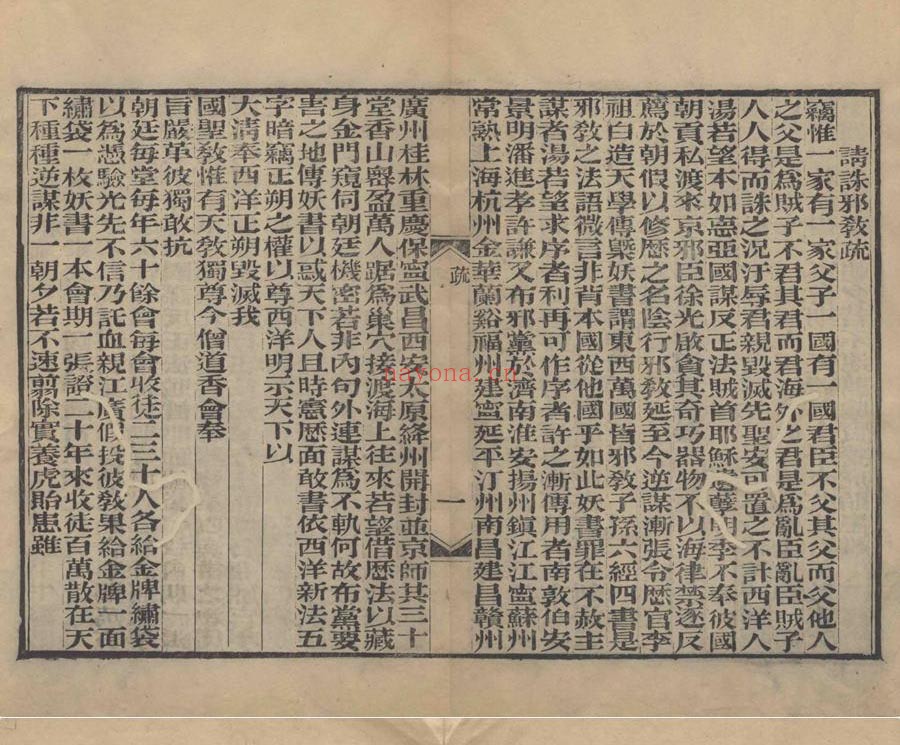 請誅邪教疏
竊惟一家有一家父子一國有一國君臣不父其父而父他人
之父是爲賊子不君其君而君海外之君是爲亂臣亂臣賊子
人人得而誅之況汙辱君親毀滅先聖安可置之不計西洋人
湯若望本如悳亞國謀反正法賊首耶穌遺孽明季不奉彼國
朝貢私渡來京邪臣徐光啟貪其奇巧器物不以海律禁逐反
薦於朝假以修歷之名陰行邪教延至今逆謀漸張令歷官李
祖白造天學傳槩妖書謂東西萬國皆邪教子孫六經四書是
邪教之法語微言非背本國從他國乎如此妖書罪在不赦主
謀者湯若望求序者利再可作序者許之漸傳用者南敦伯安
景明潘進孝許謙又布邪黨於濟南淮安揚州鎮江江寧蘇州
常熟上海杭州金華蘭谿福州建寧延平汀州南昌建昌贛州
疏
一
廣州桂林重慶保寧武昌西安太原絳州開封並京師其三十
堂香山嶴盈萬人踞爲巢穴接渡海上往來若望借歷法以藏
身金門窺伺朝廷機密若非內勾外連謀爲不軌何故布黨要
害之地傳妖書以惑天下人且時憲歷面敢書依西洋新法五
字暗竊正朔之權以尊西洋明示天下以
大清奉西洋正朔毀滅我
國聖教惟有天教獨尊今僧道香會奉
旨嚴革彼獨敢抗
朝廷每堂每年六十餘會每會收徒二三十人各給金牌繡袋
以爲憑驗光先不信乃託血親江廣假投彼教果給金牌一面
繡袋一枚妖書一本會期一張證二十年來收徒百萬散在天
下種種逆謀非一朝夕若不速翦除實養虎貽患雖
nayona.cn